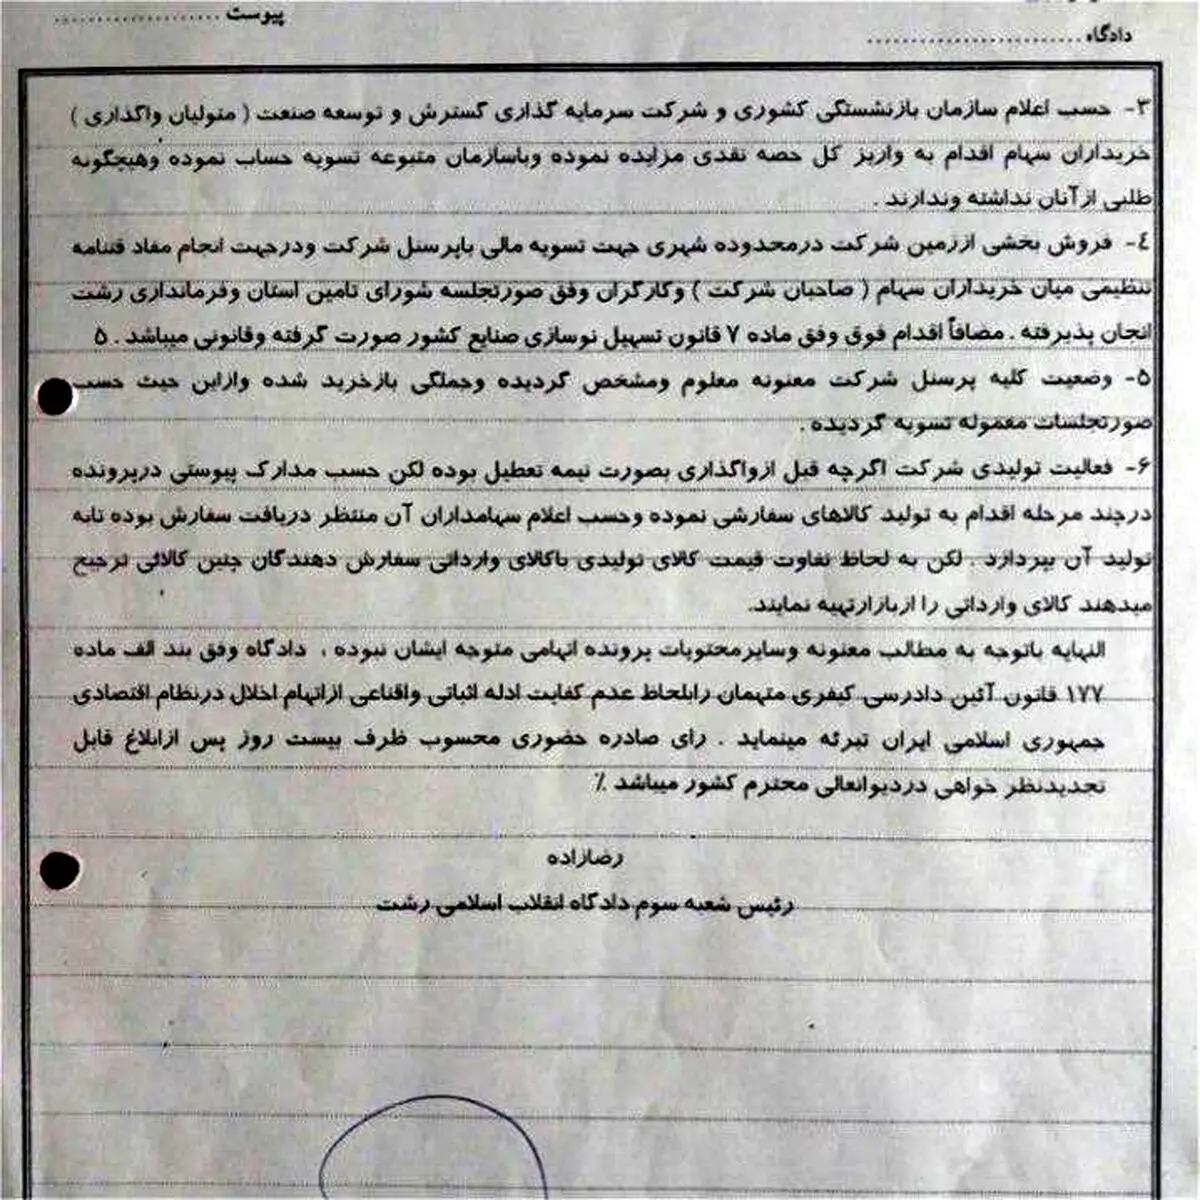 پیوست ....................
دادگاه .........................
۳- حسب اعلام سازمان بازنشستگی کشوری و شرکت سرمایه گذاری گسترش و توسعه صنعت ( متولیان واگذاری )
خریداران سهام اقدام به واریز کل حصه نقدی مزایده نموده وباسازمان متبوعه تسویه حساب نموده وهیچگونه
طلبی ازآنان نداشته وندارند .
۴- فروش بخشی اززمین شرکت درمحدوده شهری جهت تسویه مالی باپرسنل شرکت ودرجهت انجام مفاد فتنامه
تنظیمی میان خریداران سهام ( صاحبان شرکت ) وکارگران وفق صورتجلسه شورای تامین استان وفرمانداری رشت
انجان پذیرفته . مضافاً اقدام فوق وفق ماده ۷ قانون تسهیل نوسازی صنایع کشور صورت گرفته وقانونی میباشد . ۵
۵- وضعیت کلیه پرسنل شرکت معنونه معلوم ومشخص گردیده وجملگی بازخرید شده وازاین حیث حسب
صورتجلسات معموله تسویه گردیده .
۶- فعالیت تولیدی شرکت اگرچه قبل ازواگذاری بصورت نیمه تعطیل بوده لکن حسب مدارک پیوستی درپرونده
درچند مرحله اقدام به تولید کالاهای سفارشی نموده وحسب اعلام سهامداران آن منتظر دریافت سفارش بوده تابه
تولید آن بپردازد . لکن به لحاظ تفاوت قیمت کالای تولیدی باکالای وارداتی سفارش دهندگان چنین کالائی ترجیح
میدهند کالای وارداتی را ازبازارتهیه نمایند.
النهایه باتوجه به مطالب معنونه وسایرمحتویات پرونده اتهامی متوجه ایشان نبوده ، دادگاه وفق بند الف ماده
۱۷۷ قانون آئین دادرسی کیفری متهمان رابلحاظ عدم کفایت ادله اثباتی واقناعی ازاتهام اخلال درنظام اقتصادی
جمهوری اسلامی ایران تبرئه مینماید . رای صادره حضوری محسوب ظرف بیست روز پس ازابلاغ قابل
تجدیدنظر خواهی دردیوانعالی محترم کشور میباشد ٪
رضازاده
رئیس شعبه سوم دادگاه انقلاب اسلامی رشت